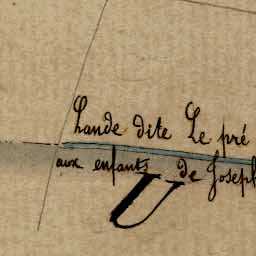 Lande dite Le pré
aux enfants de Joseph
U